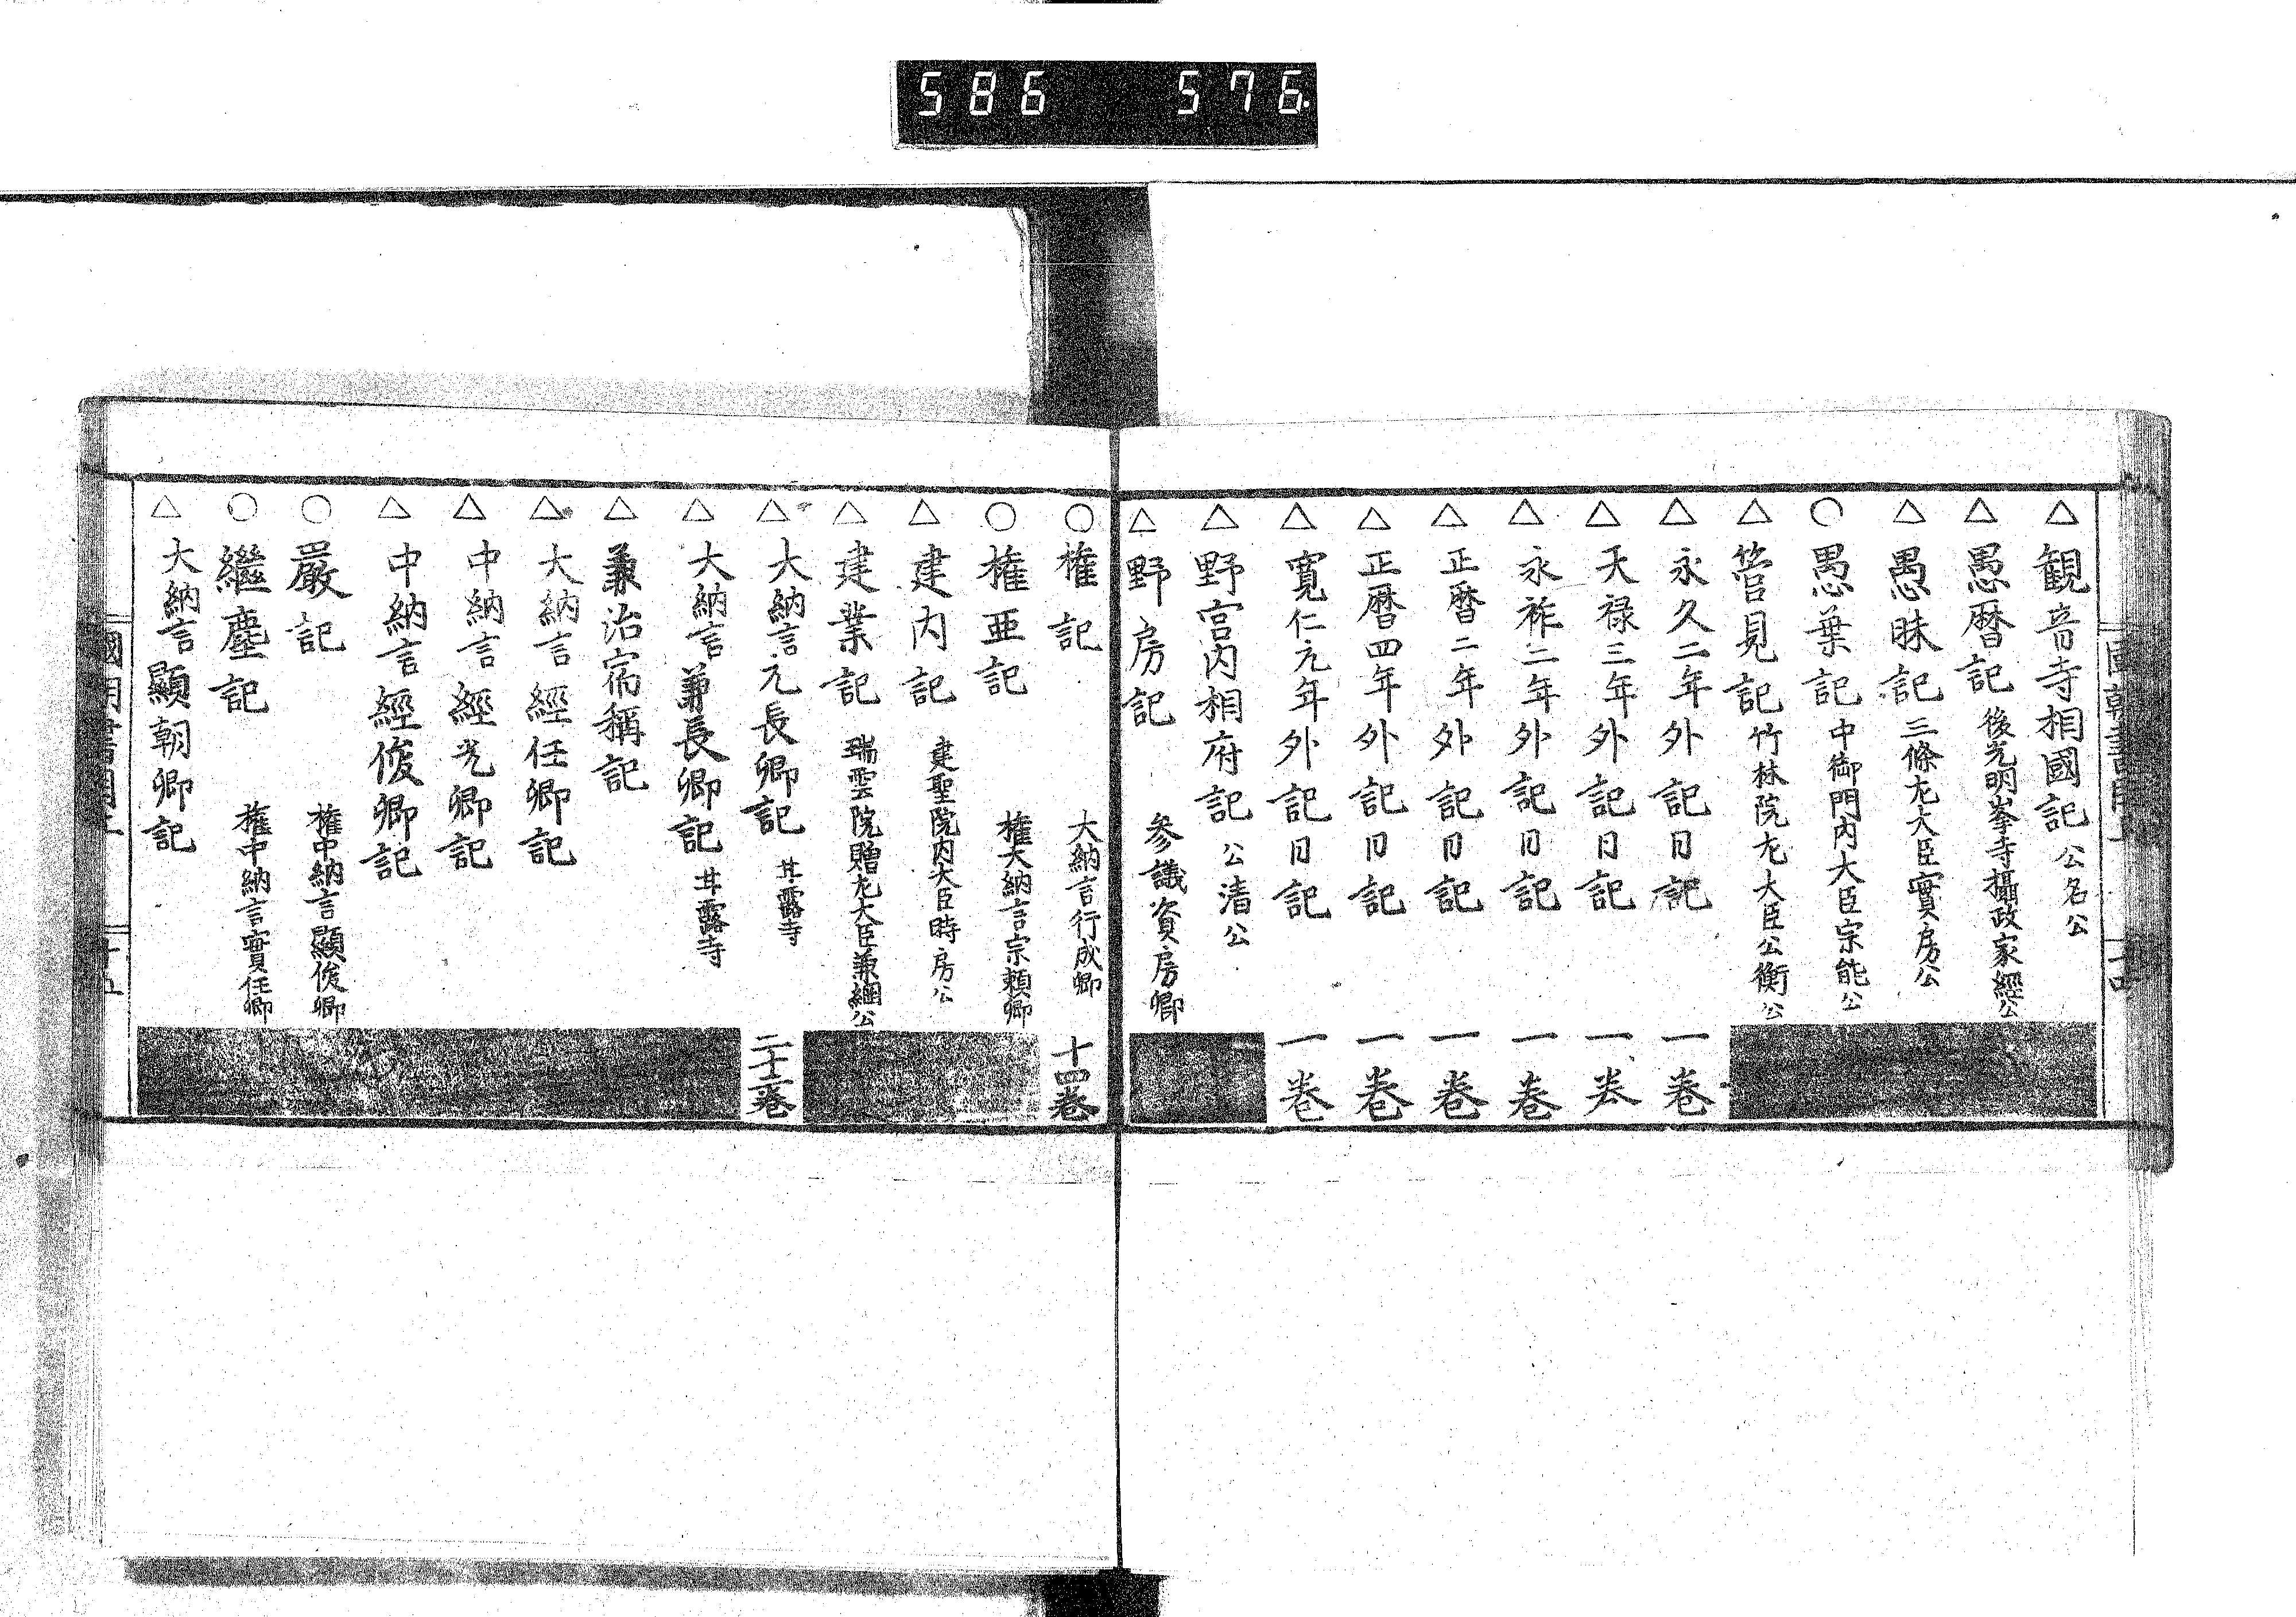 586 576
△観音寺相國記 公名公
△愚暦記 後光明峯寺攝政家經公
△愚昧記 三條左大臣實房公
○愚葉記 中御門内大臣宗能公
△管見記 竹林院左大臣公衡公
△永久二年外記日記 一巻
△天禄三年外記日記 一巻
△永祚二年外記日記 一巻
△正暦二年外記日記 一巻
△正暦四年外記日記 一巻
△寛仁元年外記日記 一巻
△野宮内相府記 公清公
△野房記 参議資房卿
○権記 大納言行成卿 十四巻
○権亜記 権大納言宗頼卿
△建内記 建聖院内大臣時房公
△建業記 瑞雲院贈左大臣兼綱公
△大納言元長卿記 甘露寺 二十二巻
△大納言兼長卿記 甘露寺
△兼治宿稱記
△大納言經任卿記
△中納言經光卿記
△中納言經俊卿記
○嚴記 権中納言顯俊卿
○繼塵記 権中納言實任卿
△大納言顯朝卿記